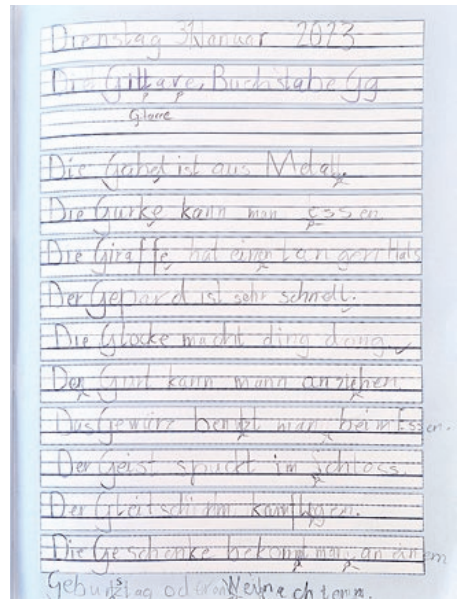 Dienstag 31 Januar 2023
Die Gittare, Buchstabe Gg
Die Gabel ist aus Metall.
Die Gurke kann man essen
Die Giraffe hat einen langen Hals
Der Gepard ist sehr schnell.
Die Glocke macht ding dong
Der Gurt kann mann anziehen.
Das Gewürz benutzt man beim Essen.
Der Geist spuckt im Schloss.
Der Gleitschirm kann fligen.
Die Geschenke bekommt man an einem
Geburtstag oder an